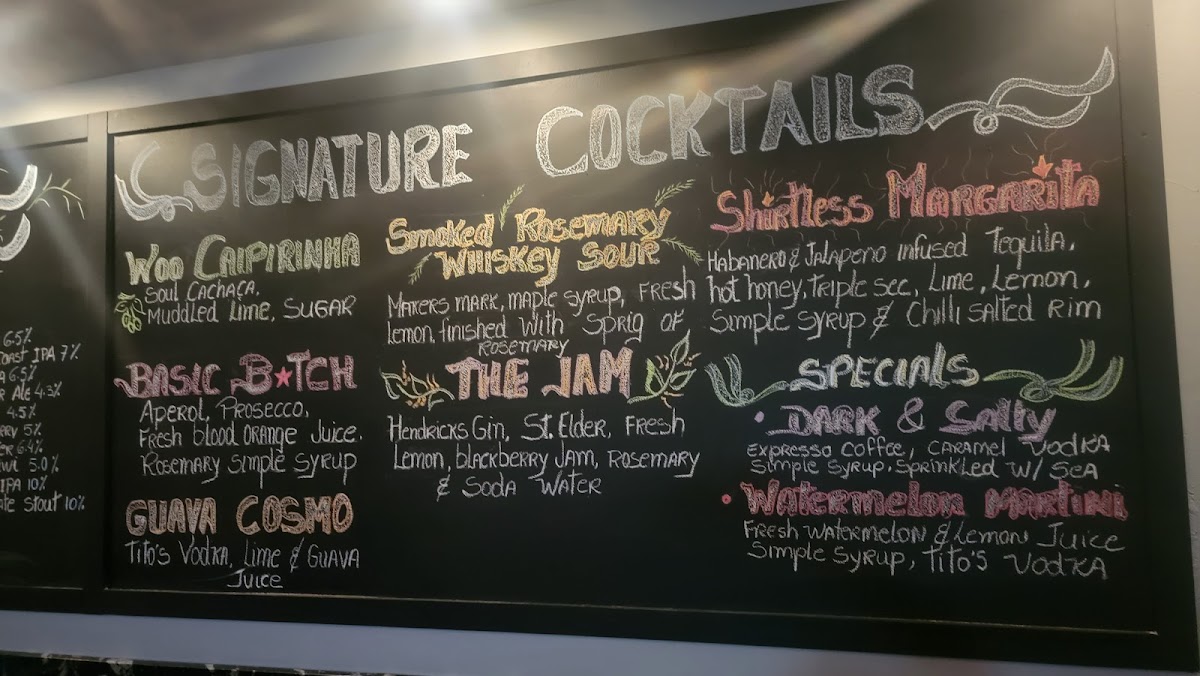 SIGNATURE COCKTAILS
WOO CAIPIRINHA
SOUL CACHACA,
MUDDLED LIME, SUGAR
BASIC B★TCH
APEROL, PROSECCO,
FRESH BLOOD ORANGE JUICE.
ROSEMARY SIMPLE SYRUP
GUAVA COSMO
TITO'S VODKA, LIME & GUAVA
JUICE
SMOKED ROSEMARY
WHISKEY SOUR
MAKERS MARK, MAPLE SYRUP, FRESH
LEMON, FINISHED WITH SPRIG OF
ROSEMARY
THE JAM
HENDRICKS GIN, ST. ELDER, FRESH
LEMON, BLACKBERRY JAM, ROSEMARY
& SODA WATER
SHIRTLESS MARGARITA
HABANERO & JALAPENO INFUSED TEQUILA,
HOT HONEY, TRIPLE SEC, LIME, LEMON,
SIMPLE SYRUP & CHILLI SALTED RIM
SPECIALS
• DARK & SALTY
EXPRESSO COFFEE, CARAMEL VODKA
SIMPLE SYRUP, SPRINKLED W/ SEA
• WATERMELON MARTINI
FRESH WATERMELON & LEMON JUICE
SIMPLE SYRUP, TITO'S VODKA
6.5%
IPA 7%
6.5%
ALE 4.3%
4.5%
5%
6.4%
5.0%
IPA 10%
STOUT 10%